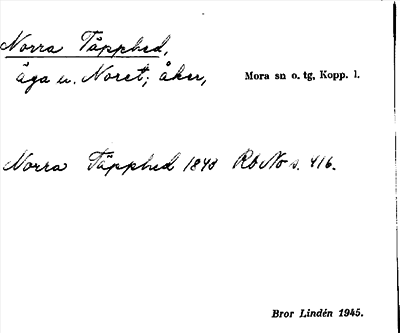 Norra Täpphed,
äga u. Noret; åker,
Mora sn o. tg, Kopp. l.
Norra Täpphed 1848 Rb No s. 416.
Bror Lindén 1945.